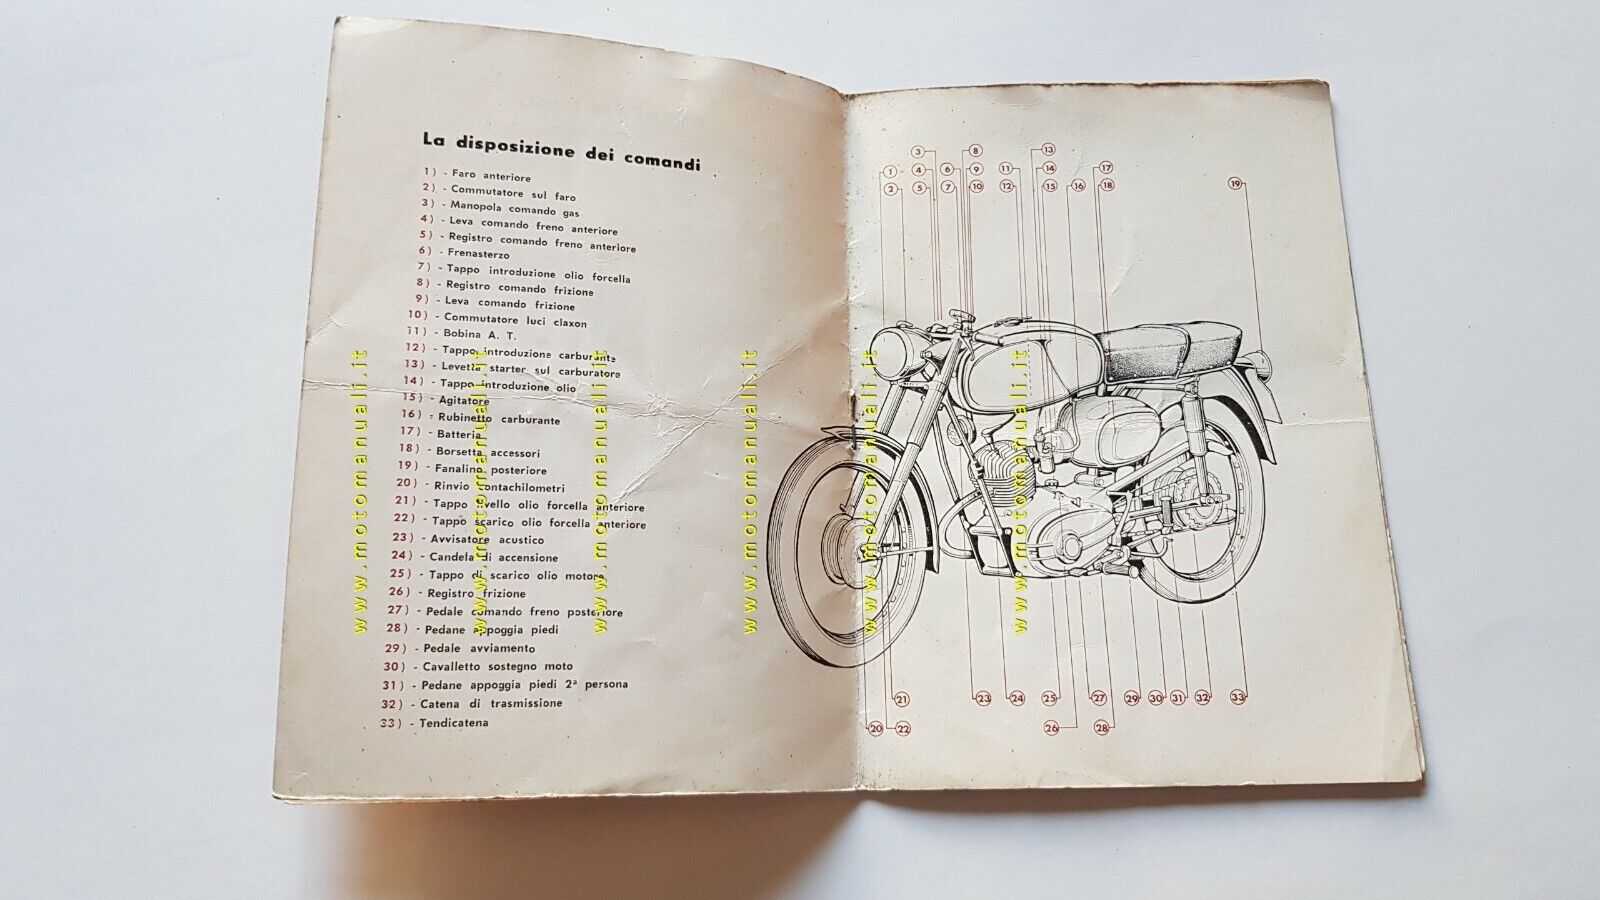 La disposizione dei comandi
1) - Faro anteriore
2) - Commutatore sul faro
3) - Manopola comando gas
4) - Leva comando freno anteriore
5) - Registro comando freno anteriore
6) - Frenasterzo
7) - Tappo introduzione olio forcella
8) - Registro comando frizione
9) - Leva comando frizione
10) - Commutatore luci claxon
11) - Bobina A. T.
12) - Tappo introduzione carburante
13) - Levetta starter sul carburatore
14) - Tappo introduzione olio
15) - Agitatore
16) - Rubinetto carburante
17) - Batteria
18) - Borsetta accessori
19) - Fanalino posteriore
20) - Rinvio contachilometri
21) - Tappo livello olio forcella anteriore
22) - Tappo scarico olio forcella anteriore
23) - Avvisatore acustico
24) - Candela di accensione
25) - Tappo di scarico olio motore
26) - Registro frizione
27) - Pedale comando freno posteriore
28) - Pedane appoggia piedi
29) - Pedale avviamento
30) - Cavalletto sostegno moto
31) - Pedane appoggia piedi 2ª persona
32) - Catena di trasmissione
33) - Tendicatena
3 8 13
1 4 6 9 11 14 17
2 5 7 10 12 15 16 18 19
21 23 24 25 27 29 30 31 32 33
20 22 26 28
www.motomanuali.it
www.motomanuali.it
www.motomanuali.it
www.motomanuali.it
www.motomanuali.it
www.motomanuali.it